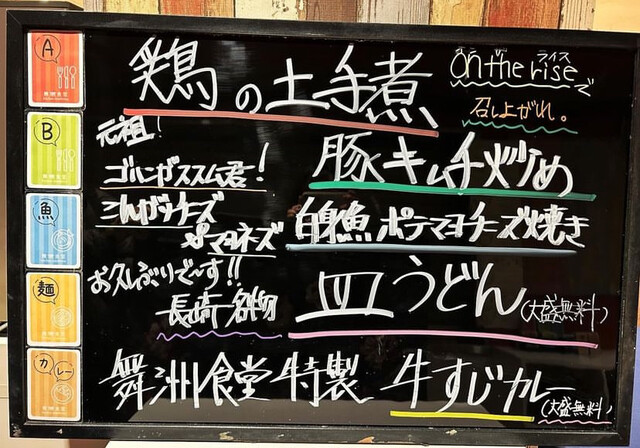 A
鶏の土手煮
おんざ ライス
on the riseで
召し上がれ。
B
元祖!
ゴハンガススム君!
豚キムチ炒め
魚
こんがりチーズ
&マヨネーズ
白身魚ポテマヨチーズ焼き
麺
お久しぶりで〜す!!
長崎名物
皿うどん(大盛無料)
カレー
舞洲食堂特製 牛すじカレー
(大盛無料)